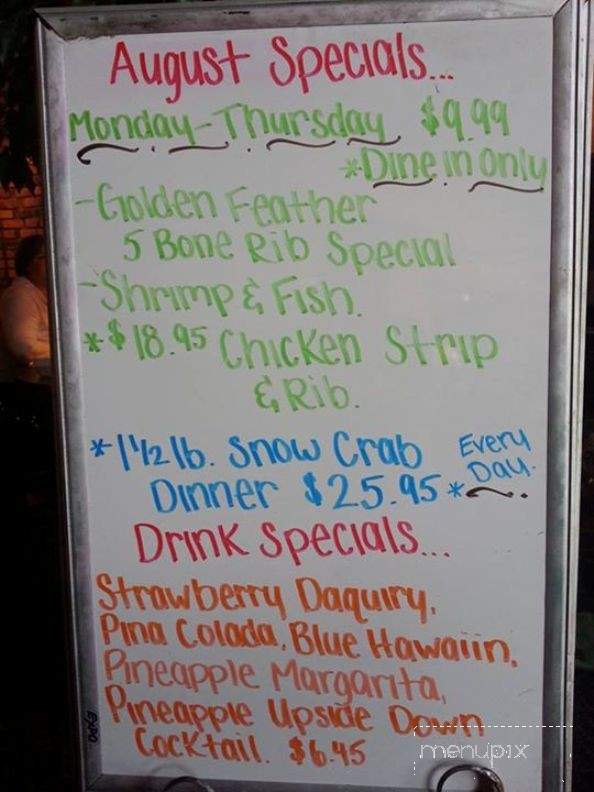 August Specials...
Monday-Thursday $9.99
*Dine in only
-Golden Feather
5 Bone Rib Special
-Shrimp & Fish.
*$18.95 Chicken Strip
& Rib.
*1 1/2 lb. Snow Crab Every
Dinner $25.95* Day.
Drink Specials...
Strawberry Daquiry,
Pina Colada, Blue Hawaiin,
Pineapple Margarita,
Pineapple Upside Down
Cocktail. $6.45
EXPO
menupix